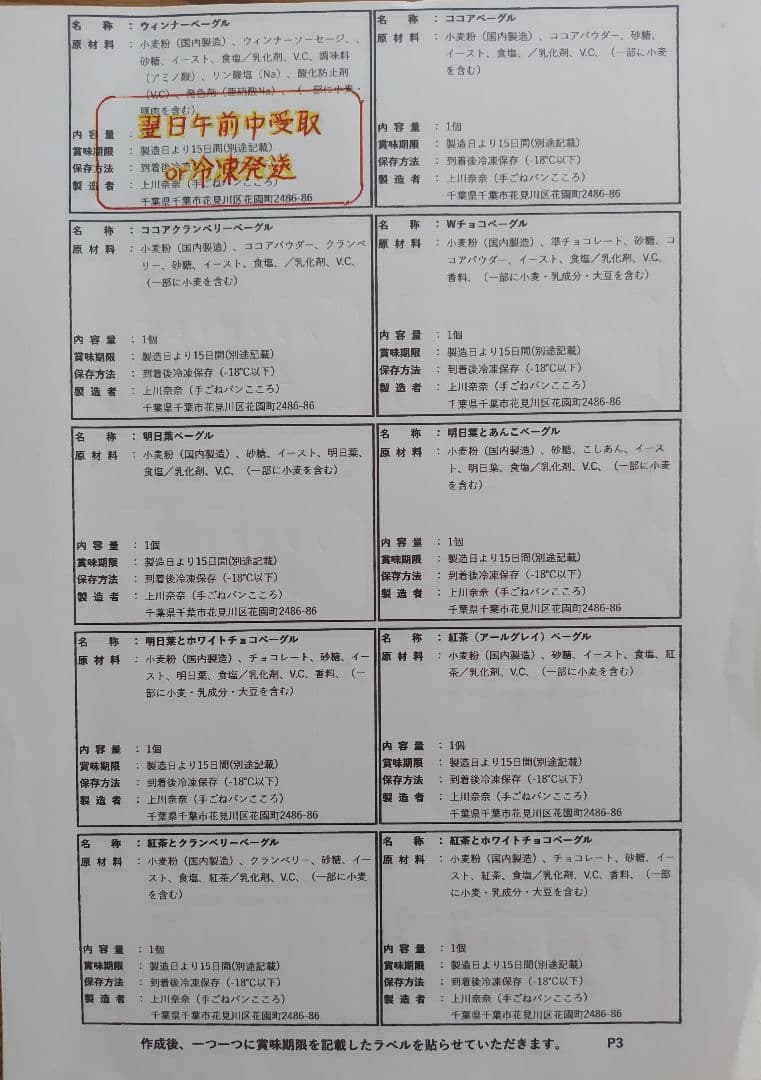 名称：ウィンナーベーグル
原材料：小麦粉（国内製造）、ウィンナーソーセージ、、
砂糖、イースト、食塩／乳化剤、V.C、調味料
（アミノ酸）、リン酸塩（Na）、酸化防止剤
（V.C）、発色剤（亜硝酸Na）、（一部に小麦・
豚肉を含む）
翌日午前中受取
or冷凍発送
内容量
賞味期限：製造日より15日間(別途記載)
保存方法：到着
製造者：上川奈奈（手ごねパンこころ）
千葉県千葉市花見川区花園町2486-86
名称：ココアベーグル
原材料：小麦粉（国内製造）、ココアパウダー、砂糖、
イースト、食塩、／乳化剤、V.C、（一部に小麦
を含む）
内容量：1個
賞味期限：製造日より15日間(別途記載)
保存方法：到着後冷凍保存（-18℃以下）
製造者：上川奈奈（手ごねパンこころ）
千葉県千葉市花見川区花園町2486-86
名称：ココアクランベリーベーグル
原材料：小麦粉（国内製造）、ココアパウダー、クランベ
リー、砂糖、イースト、食塩、／乳化剤、V.C、
（一部に小麦を含む）
内容量：1個
賞味期限：製造日より15日間(別途記載)
保存方法：到着後冷凍保存（-18℃以下）
製造者：上川奈奈（手ごねパンこころ）
千葉県千葉市花見川区花園町2486-86
名称：Wチョコベーグル
原材料：小麦粉（国内製造）、準チョコレート、砂糖、コ
コアパウダー、イースト、食塩／乳化剤、V.C、
香料、（一部に小麦・乳成分・大豆を含む）
内容量：1個
賞味期限：製造日より15日間(別途記載)
保存方法：到着後冷凍保存（-18℃以下）
製造者：上川奈奈（手ごねパンこころ）
千葉県千葉市花見川区花園町2486-86
名称：明日葉ベーグル
原材料：小麦粉（国内製造）、砂糖、イースト、明日葉、
食塩／乳化剤、V.C、（一部に小麦を含む）
内容量：1個
賞味期限：製造日より15日間(別途記載)
保存方法：到着後冷凍保存（-18℃以下）
製造者：上川奈奈（手ごねパンこころ）
千葉県千葉市花見川区花園町2486-86
名称：明日葉とあんこベーグル
原材料：小麦粉（国内製造）、砂糖、こしあん、イース
ト、明日葉、食塩／乳化剤、V.C、（一部に小麦
を含む）
内容量：1個
賞味期限：製造日より15日間(別途記載)
保存方法：到着後冷凍保存（-18℃以下）
製造者：上川奈奈（手ごねパンこころ）
千葉県千葉市花見川区花園町2486-86
名称：明日葉とホワイトチョコベーグル
原材料：小麦粉（国内製造）、チョコレート、砂糖、イー
スト、明日葉、食塩／乳化剤、V.C、香料、（一
部に小麦・乳成分・大豆を含む）
内容量：1個
賞味期限：製造日より15日間(別途記載)
保存方法：到着後冷凍保存（-18℃以下）
製造者：上川奈奈（手ごねパンこころ）
千葉県千葉市花見川区花園町2486-86
名称：紅茶（アールグレイ）ベーグル
原材料：小麦粉（国内製造）、砂糖、イースト、食塩、紅
茶／乳化剤、V.C、（一部に小麦を含む）
内容量：1個
賞味期限：製造日より15日間(別途記載)
保存方法：到着後冷凍保存（-18℃以下）
製造者：上川奈奈（手ごねパンこころ）
千葉県千葉市花見川区花園町2486-86
名称：紅茶とクランベリーベーグル
原材料：小麦粉（国内製造）、クランベリー、砂糖、イー
スト、食塩、紅茶／乳化剤、V.C、（一部に小麦
を含む）
内容量：1個
賞味期限：製造日より15日間(別途記載)
保存方法：到着後冷凍保存（-18℃以下）
製造者：上川奈奈（手ごねパンこころ）
千葉県千葉市花見川区花園町2486-86
名称：紅茶とホワイトチョコベーグル
原材料：小麦粉（国内製造）、チョコレート、砂糖、イー
スト、紅茶、食塩／乳化剤、V.C、香料、（一部
に小麦・乳成分・大豆を含む）
内容量：1個
賞味期限：製造日より15日間(別途記載)
保存方法：到着後冷凍保存（-18℃以下）
製造者：上川奈奈（手ごねパンこころ）
千葉県千葉市花見川区花園町2486-86
作成後、一つ一つに賞味期限を記載したラベルを貼らせていただきます。 P3